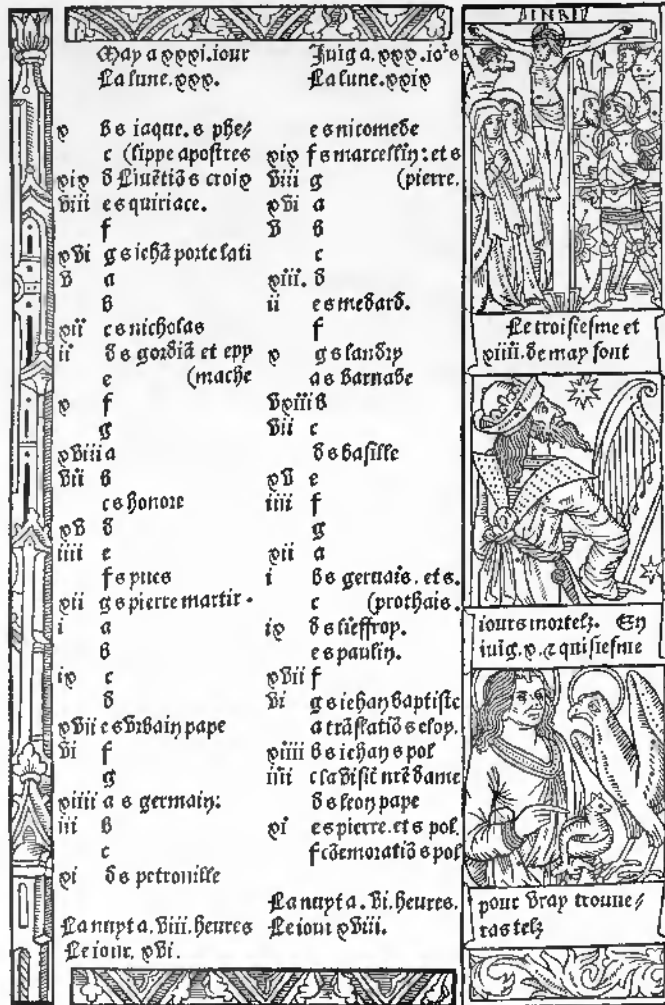 INRI
May a xxxi. iour
La lune. xxx.
x b s iaque. s phe/
c (lippe apostres
xix d Liuẽtiõ s croix
viii e s quiriace.
f
xvi g s iehã porte lati
v a
b
xii c s nicholas
ii d s gordiã et epy
e (mache
x f
g
xviii a
vii b
c s honore
xv d
iiii e
f s yues
xii g s pierre martir.
i a
b
ix c
d
xvii e s vrbain pape
vi f
g
xiiii a s germain:
iii b
c
xi d s petronille
La nuyt a. viii. heures
Le iour. xvi.
Juig a. xxx. io's
La lune. xxix
e s nicomede
xix f s marcellin: et s
viii g (pierre.
xvi a
v b
c
xiii. d
ii e s medard.
f
x g s landry
a s barnabe
vxiii b
vii c
d s basille
xv e
iiii f
g
xii a
i b s geruais. et s.
c (prothais.
ix d s lieffroy.
e s paulin.
xvii f
vi g s iehan baptiste
a trãslatiõ s eloy.
xiiii b s iehan s pol
iiii c la visit nr̃e dame
d s leon pape
xi e s pierre. et s pol.
f cõemoratiõ s pol
La nuyt a. vi. heures.
Le iour xviii.
Le troisiesme et
xiiii. de may sont
iours mortelz. En
iuig. x. & quisiesme
pour vray trouue/
ras telz